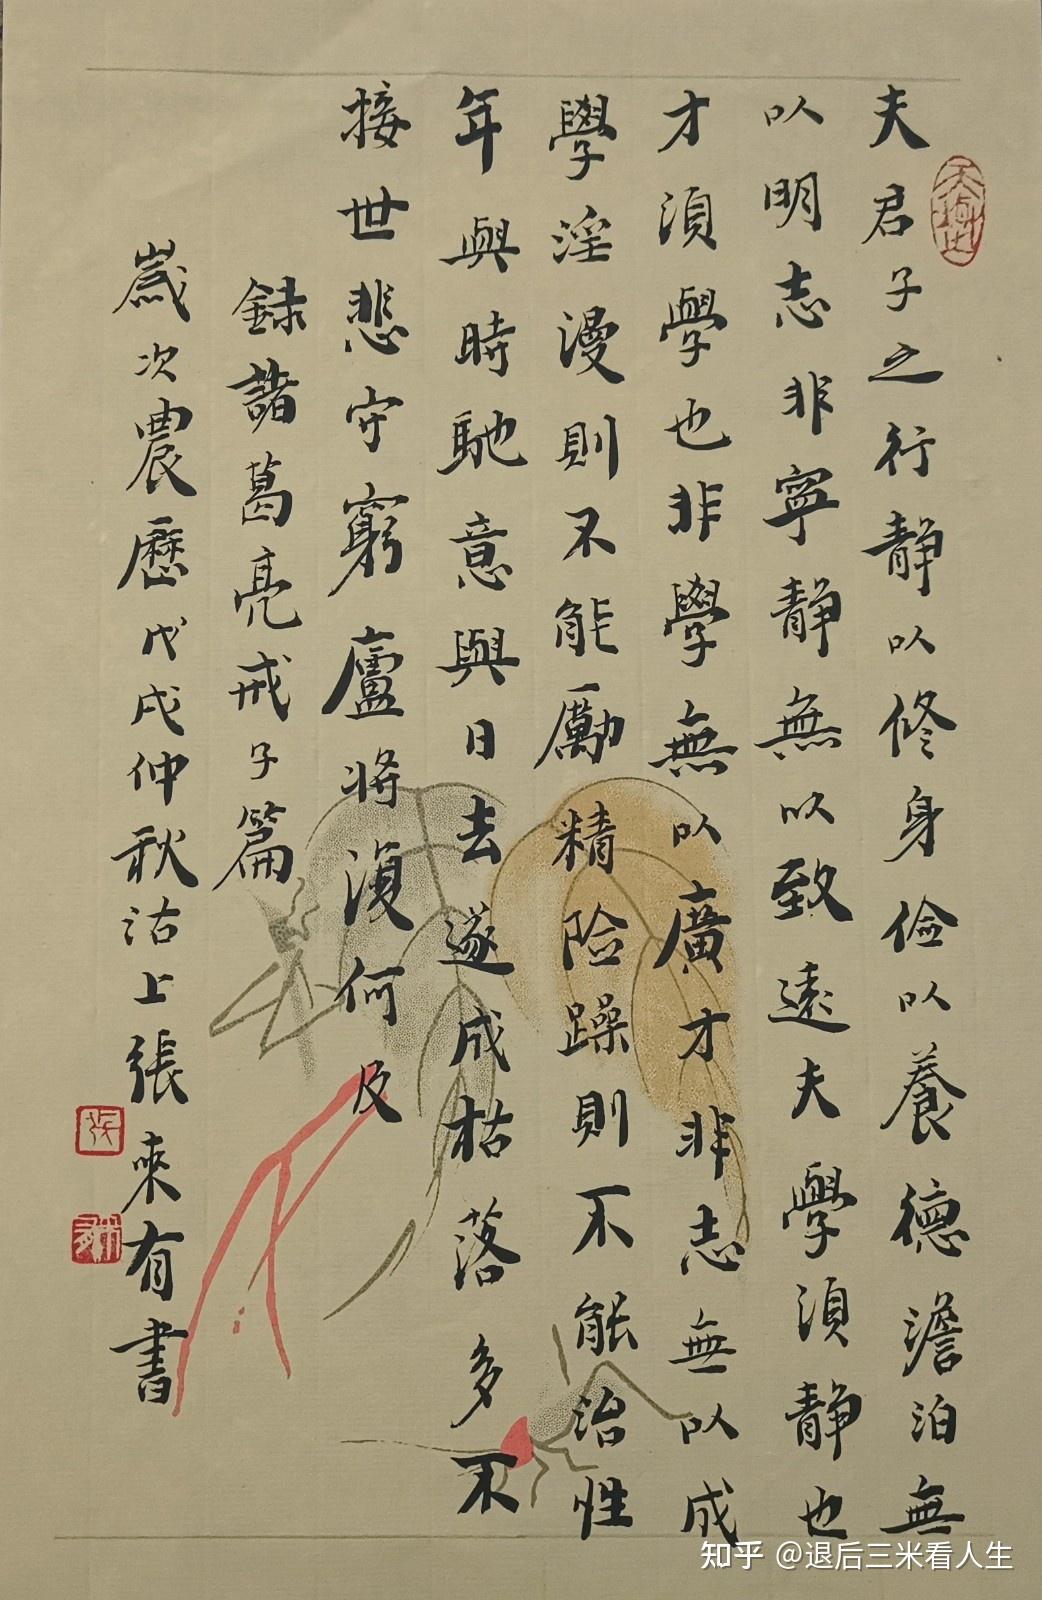 夫君子之行静以修身儉以養德澹泊無
以明志非寧静無以致遠夫學須静也
才須學也非學無以廣才非志無以成
學淫漫則不能勵精險躁則不能治性
年與時馳意與日去遂成枯落多不
接世悲守窮廬將復何及
録諸葛亮戒子篇
歲次農歷戊戌仲秋沽上張來有書
知乎 @退后三米看人生